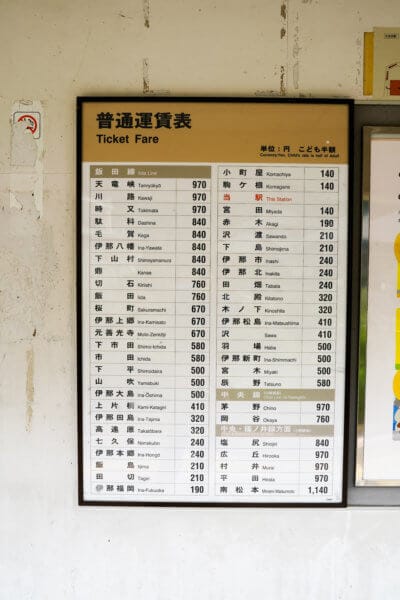 普通運賃表
Ticket Fare
単位：円　こども半額
Currency:Yen, Child's rate is half of Adult
飯田線 Iida Line
天竜峡 Tenryūkyō 970
川路 Kawaji 970
時又 Tokimata 970
駄科 Dashina 840
毛賀 Kega 840
伊那八幡 Ina-Yawata 840
下山村 Shimoyamamura 840
鼎 Kanae 840
切石 Kiriishi 760
飯田 Iida 760
桜町 Sakuramachi 670
伊那上郷 Ina-Kamisato 670
元善光寺 Moto-Zenkōji 670
下市田 Shimo-Ichida 580
市田 Ichida 580
下平 Shimodaira 500
山吹 Yamabuki 500
伊那大島 Ina-Ōshima 500
上片桐 Kami-Katagiri 410
伊那田島 Ina-Tajima 320
高遠原 Takatōbara 320
七久保 Nanakubo 240
伊那本郷 Ina-Hongō 240
飯島 Iijima 210
田切 Tagiri 210
伊那福岡 Ina-Fukuoka 190
小町屋 Komachiya 140
駒ケ根 Komagane 140
当駅 This Station
宮田 Miyada 140
赤木 Akagi 190
沢渡 Sawando 210
下島 Shimojima 210
伊那市 Inashi 240
伊那北 Inakita 240
田畑 Tabata 240
北殿 Kitatono 320
木ノ下 Kinoshita 320
伊那松島 Ina-Matsushima 410
沢 Sawa 410
羽場 Haba 500
伊那新町 Ina-Shimmachi 500
宮木 Miyaki 500
辰野 Tatsuno 580
中央線
茅野 Chino 970
岡谷 Okaya 760
中央・篠ノ井線方面
塩尻 Shiojiri 840
広丘 Hirooka 970
村井 Murai 970
平田 Hirata 970
南松本 Minami-Matsumoto 1,140